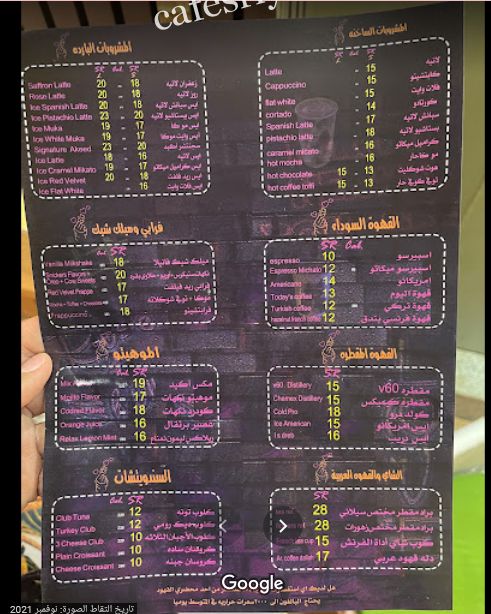 المشروبات الباردة
SR Cal. SR
L S
Saffron Latte 20 - 18 زعفران لاتيه
Rose Latte 20 - 18 روز لاتيه
Ice Spanish Latte 20 - 18 ايس سبانش لاتيه
Ice Pistachio Latte 23 - 20 ايس بستاشيو لاتيه
Ice Muka 19 - 17 ايس موكا
Ice White Muka 19 - 17 ايس وايت موكا
Signature Akeed 23 - 20 سجنتشر اكيد
Ice Latte 18 - 16 ايس لاتيه
Ice Cramel Mikato 19 - 17 ايس كراميل ميكاتو
Ice Red Velvet 20 - 18 ايس ريد فلفت
Ice Flat White - 16 ايس فلات وايت
المشروبات الساخنه
SR Cal. SR
L S
Latte - 15 لاتيه
Cappuccino - 15 كابتشينو
flat white - 15 فلات وايت
cortado - 14 كورتادو
Spanish Latte - 17 سبانش لاتيه
pistachio latte - 18 بستاشيو لاتيه
caramel micato - 16 كراميل ميكاتو
hot mocha - 16 موكا حار
hot chocolate 15 - 13 هوت شوكليت
hot coffee toffi 15 - 13
فرابي وميلك شيك
Cal. SR
Vanilla Milkshake 18 ميلك شيك فانيلا
Snickers Flavors - Oreo - Lotus Biscuits 20
Red Velvet Frappe 17 فرابي ريد فيلفت
17 موكا - توفي شوكلاته
Frappuccino 18 فرابتشينو
القهوة السوداء
SR Cal.
espresso 10 اسبريسو
Espresso Michato 12 اسبريسو ميكاتو
Americano 14 امريكانو
Today's coffee 13 قهوة اليوم
Turkish coffee 12 قهوة تركي
hazelnut french coffee 12 قهوة فرنسي بندق
الموهيتو
Cal. SR
Mix 19 مكس أكيد
Mojito Flavor 17 موهيتو نكهات
Codred Flavor 18 كودرد نكهات
Orange Juice 16 عصير برتقال
Relax Lemon Mint 16 ريلاكس ليمون نعناع
القهوه المقطره
SR
v60. Distillery 15 مقطره v60
Chemex Distillery 15 مقطره كيمكس
Cold Pro 18 كولد برو
Ice American 15 ايس امريكانو
16 ايس دريب
السندويتشات
Cal. SR
Club Tuna 12 كلوب تونه
Turkey Club 12 كلوب ديك رومي
3 Cheese Club 10 كلوب الأجبان الثلاثه
Plain Croissant 10 كروسان ساده
Cheese Croissant 10 كروسان جبنه
الشاي والقهوه العربية
SR
28 براد مقطر مختص سيلاني
28 براد مقطر مختص زهورات
cup 15 كوب شاي أداة الفرنش
17 دله قهوه عربي
يحتاج البالغون الى ٢٠٠٠ سعرات حراريه في المتوسط يوميا
Google
تاريخ التقاط الصورة: نوفمبر 2021